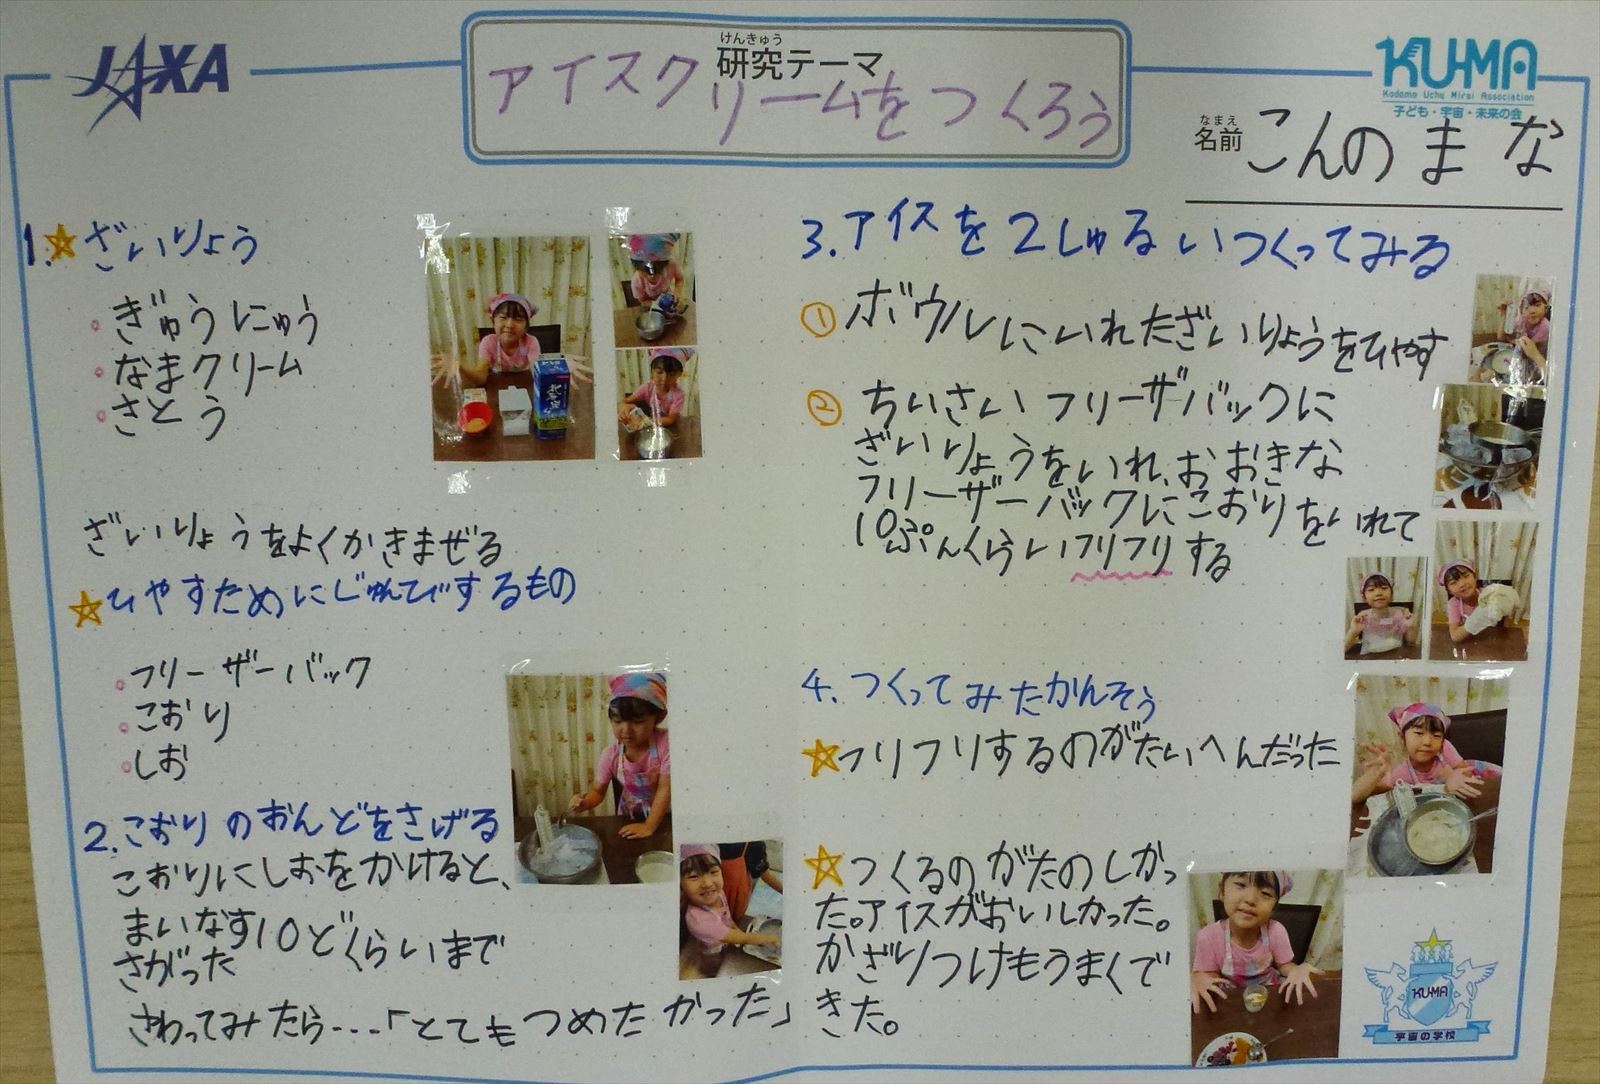 JAXA
けんきゅう
研究テーマ
アイスクリームをつくろう
KU-MA
Kodomo Uchu Mirai Association
子ども・宇宙・未来の会
なまえ
名前 こんの まな
1.☆ざいりょう
・ぎゅうにゅう
・なまクリーム
・さとう
ざいりょうをよくかきまぜる
☆ひやすためにじゅんびするもの
・フリーザーバック
・こおり
・しお
2.こおりのおんどをさげる
こおりにしおをかけると、
まいなす10どくらいまで
さがった
さわってみたら…「とてもつめたかった」
3.アイスを2しゅるいつくってみる
①ボウルにいれたざいりょうをひやす
②ちいさいフリーザバックに
ざいりょうをいれ、おおきな
フリーザーバックにこおりをいれて
10ぷんくらいフリフリする
4.つくってみたかんそう
☆フリフリするのがたいへんだった
☆つくるのがたのしかっ
た。アイスがおいしかった。
かざりつけもうまくで
きた。
KU-MA
宇宙の学校